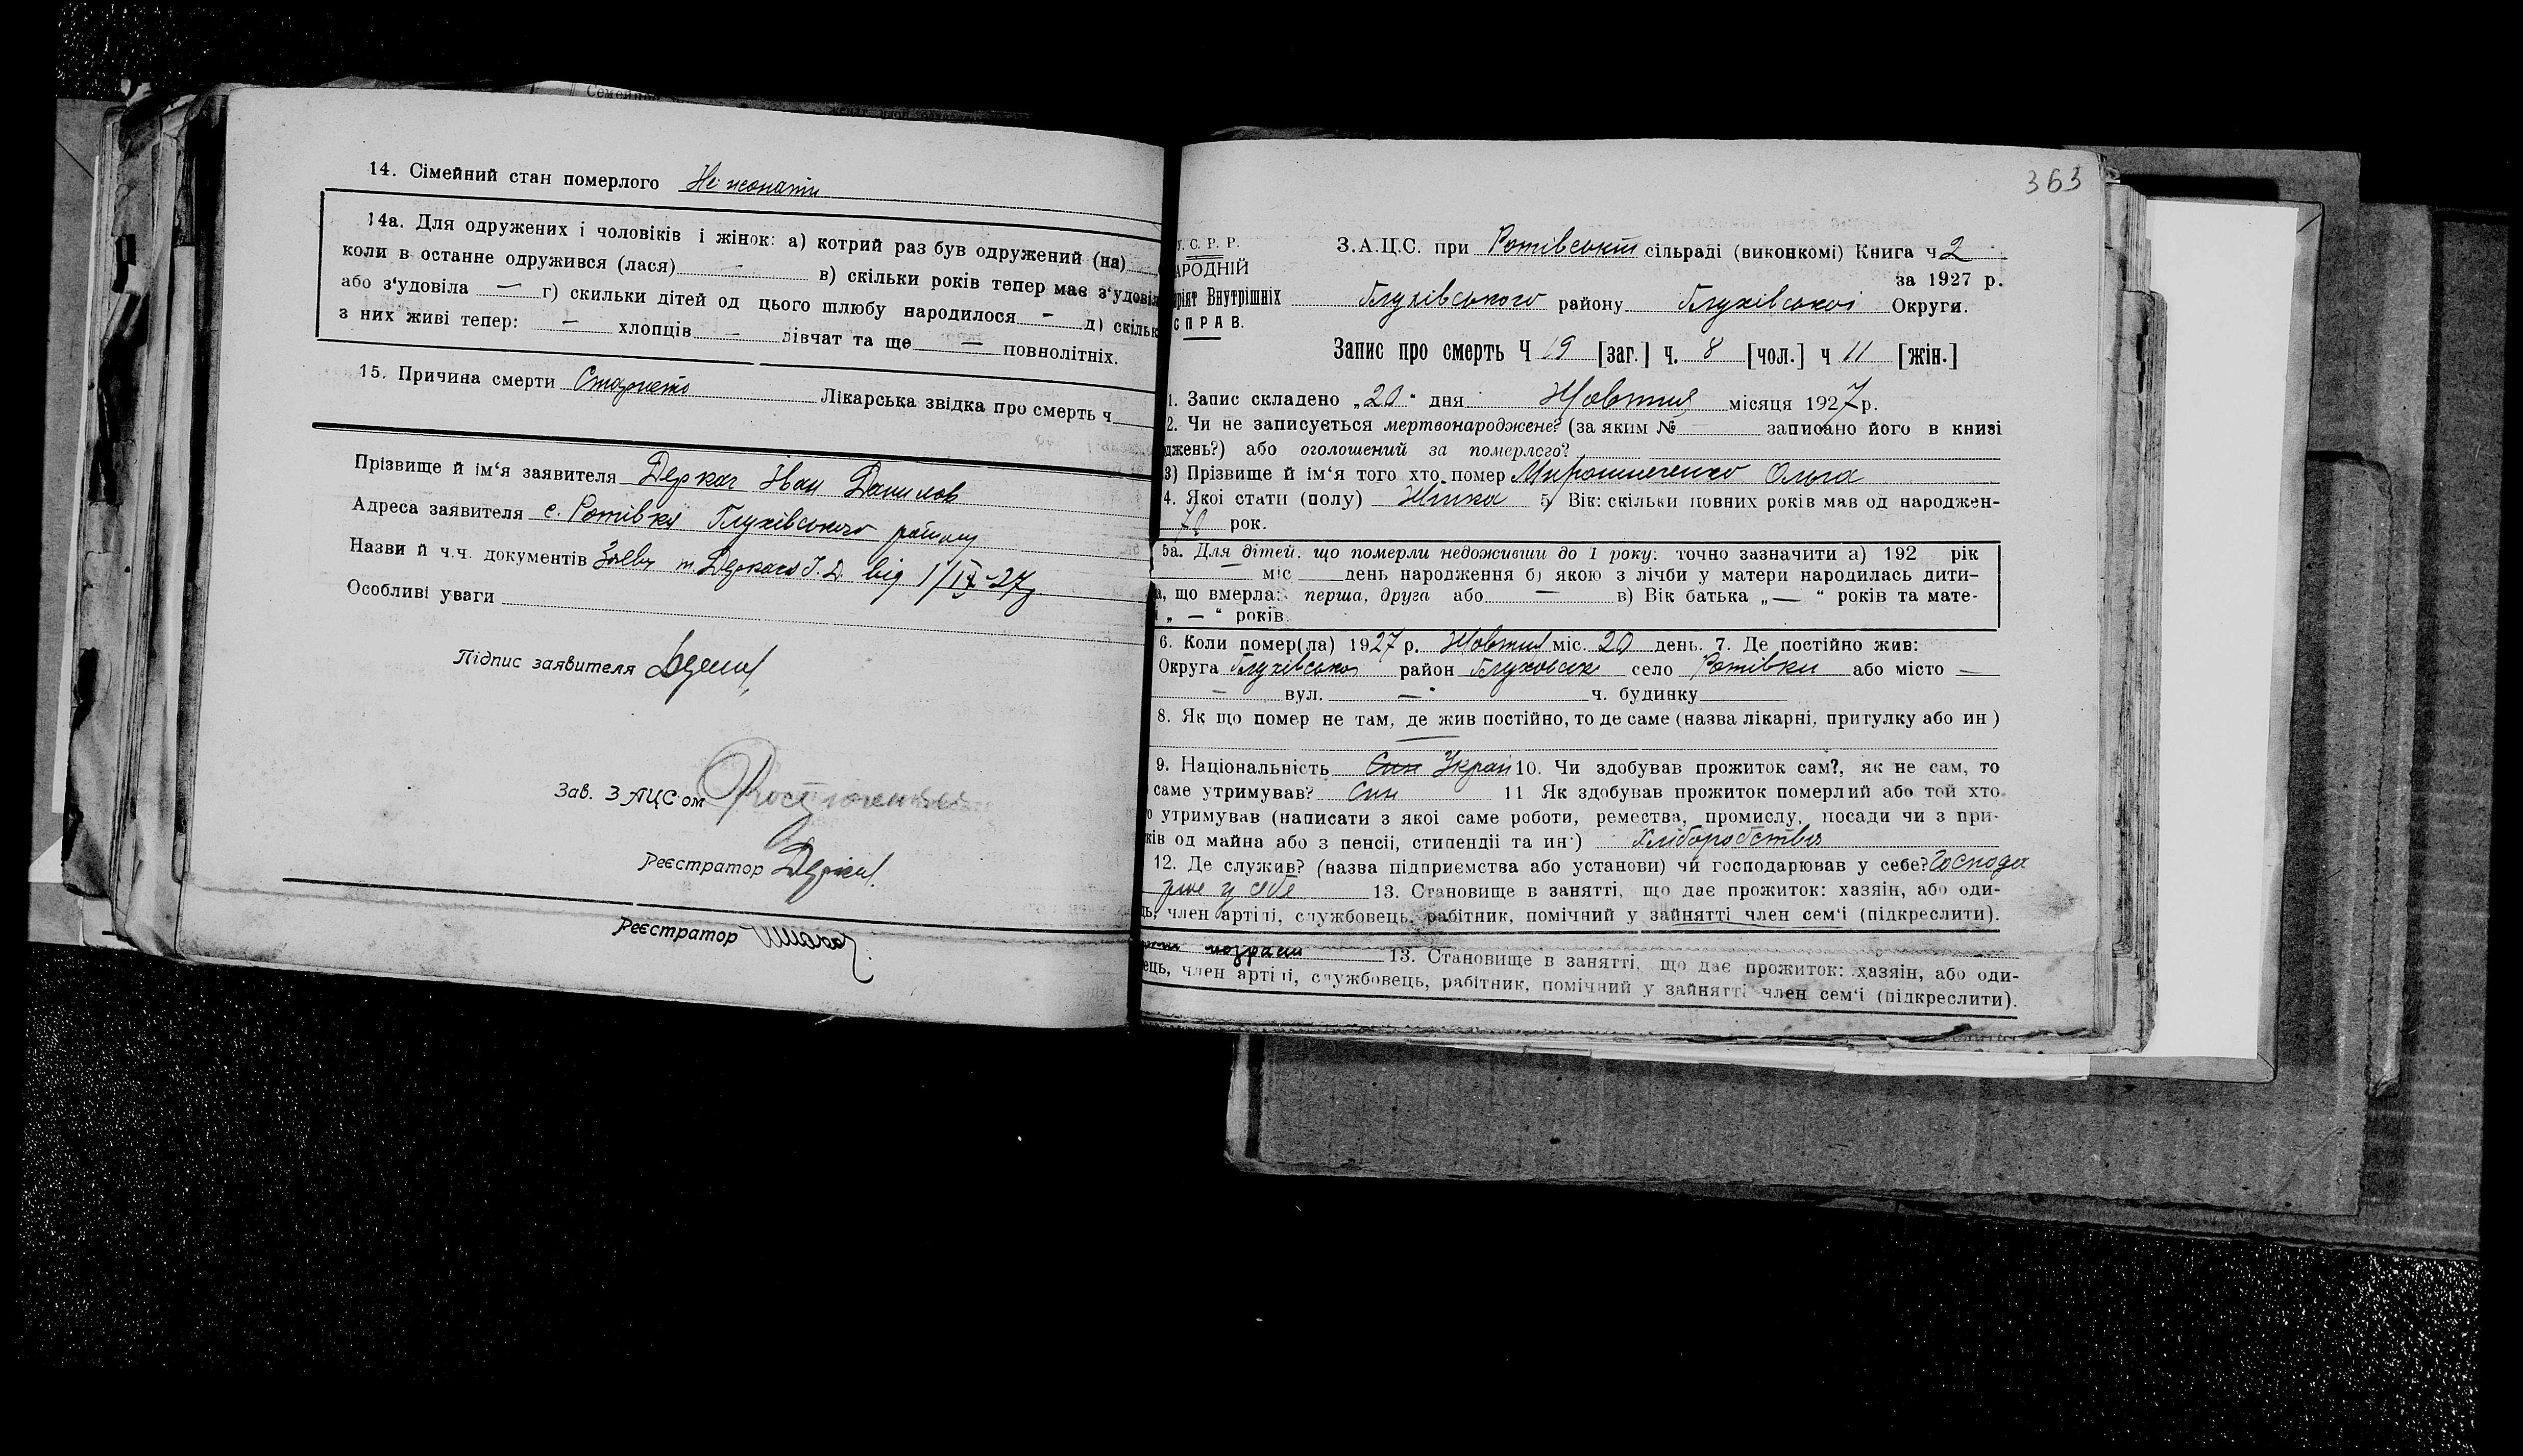 14. Сімейний стан померлого Не жонати
14а. Для одружених і чоловіків і жінок: а) котрий раз був одружений (на)
коли в останне одружився (лася) - в) скільки років тепер має з‘удовіл
або з‘удовіла — г) скильки дітей од цього шлюбу народилося - д) скільк
з них живі тепер: — хлопців — дівчат та ще — повнолітніх.
15. Причина смерти Лікарська звідка про смерть ч
Прізвище й ім‘я заявителя Деркач Іван Данилов
Адреса заявителя с. Ротівка Глухівського району
Назви й ч.ч. документів Заява т Деркача І. Д. від 1/IX-27р.
Особливі уваги
Підпис заявителя
Зав. ЗАЦС‘ом
Реєстратор
Реєстратор
363
У. С. Р. Р.
АРОДНІЙ
ріят Внутрішніх
СПРАВ.
З.А.Ц.С. при Ротівській сільраді (виконкомі) Книга ч 2
за 1927 р.
Глухівського району Глухівської Округи.
Запис про смерть Ч 19 [заг.] ч. 8 [чол.] ч 11 [жін.]
1. Запис складено „20“ дня Жовтня місяця 1927 р.
2. Чи не записується мертвонароджене? (за яким № записано його в книзі
джень?) або оголошений за померлого?
3) Прізвище й ім‘я того хто помер Мирошниченко Ольга
4. Якоі стати (полу) Жінка 5) Вік: скільки повних років мав од народжен-
70 рок.
5а. Для дітей, що померли недоживши до 1 року: точно зазначити а) 192 рік
— міс день народження б) якою з лічби у матери народилась дити-
а, що вмерла: перша, друга або — в) Вік батька „—“ років та мате-
„—“ років.
6. Коли помер(ла) 1927 р. Жовтня міс. 20 день. 7. Де постійно жив:
Округа Глухівської район Глуховськ село Ротівки або місто —
— вул. — ч. будинку
8. Як що помер не там, де жив постійно, то де саме (назва лікарні, притулку або ин)
9. Національність Син Україн 10. Чи здобував прожиток сам?, як не сам, то
саме утримував? Син 11 Як здобував прожиток померлий або той хто
о утримував (написати з якоі саме роботи, ремества, промислу, посади чи з при-
ків од майна або з пенсіі, стипендіі та ин·) Хліборобства
12. Де служив? (назва підприємства або установи) чи господарював у себе? Господа
рює у себе 13. Становище в занятті, що дає прожиток: хазяін, або оди-
ць, член артілі, службовець, рабітник, помічний у зайнятті член сем‘і (підкреслити).
13. Становище в занятті, що дає прожиток: хазяін, або оди-
ець, член артілі, службовець, рабітник, помічний у зайнятті член сем‘і (підкреслити).